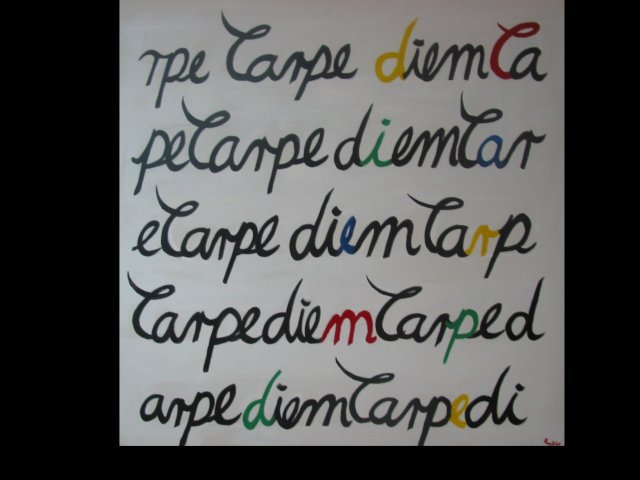 rpe Carpe diem Ca
pe Carpe diem Car
e Carpe diem Carp
Carpe diem Carpe d
arpe diem Carpe di